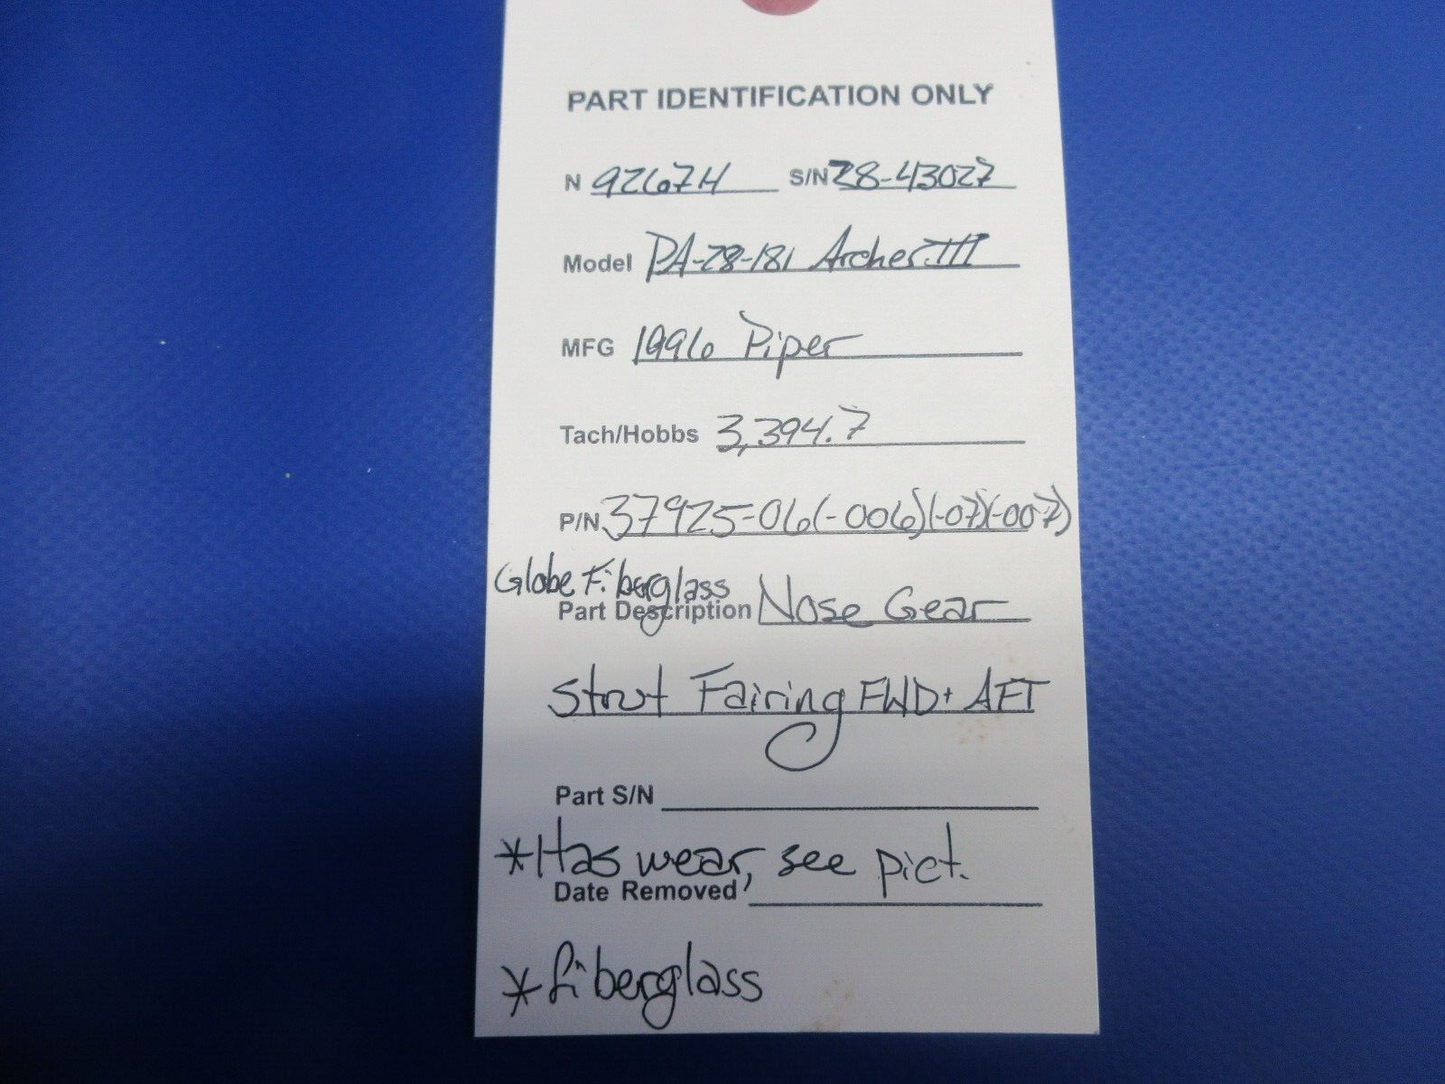 PART IDENTIFICATION ONLY
N 92674 S/N 28-43027
Model PA-28-181 Archer III
MFG 1996 Piper
Tach/Hobbs 3,394.7
P/N 37925-06(-006)(-07)(-007)
Globe Fiberglass
Part Description Nose Gear
Strut Fairing FWD + AFT
Part S/N
*Has wear, see pict.
Date Removed
*fiberglass